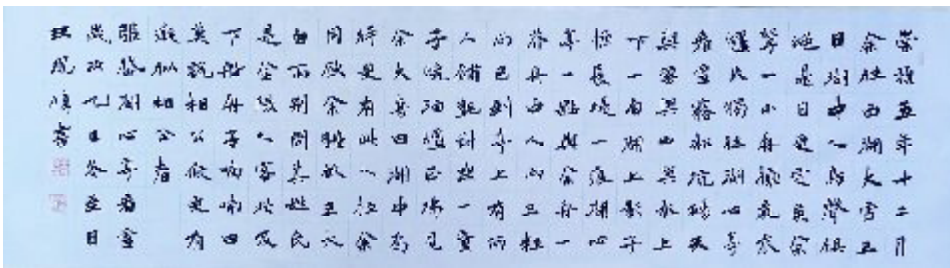 崇禎五年十二月
余住西湖大雪三
日湖中人鳥聲俱
絕是日更定矣余
拏一小舟擁毳衣
爐火獨往湖心亭
看雪霧凇沆碭天
與雲與山與水上
下一白湖上影子
惟長堤一痕湖心
亭一點與余舟一
芥舟中人兩三粒
而已到亭上有兩
人鋪氈對坐一童
子燒酒爐正沸見
余大喜曰湖中焉
得更有此人拉余
同飲余強飲三大
白而別問其姓氏
是金陵人客此及
下船舟子喃喃曰
莫說相公癡更有
癡似相公者
張岱湖心亭看雪
歲次冬至日
書